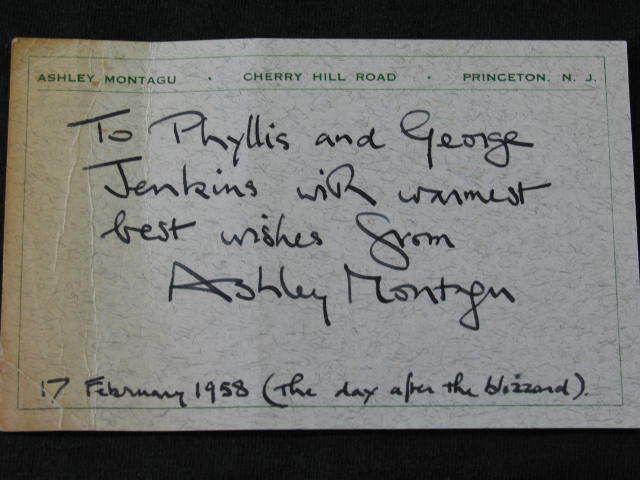 ASHLEY MONTAGU · CHERRY HILL ROAD · PRINCETON, N. J.
To Phyllis and George
Jenkins with warmest
best wishes from
Ashley Montagu
17 February 1958 (The day after the blizzard).